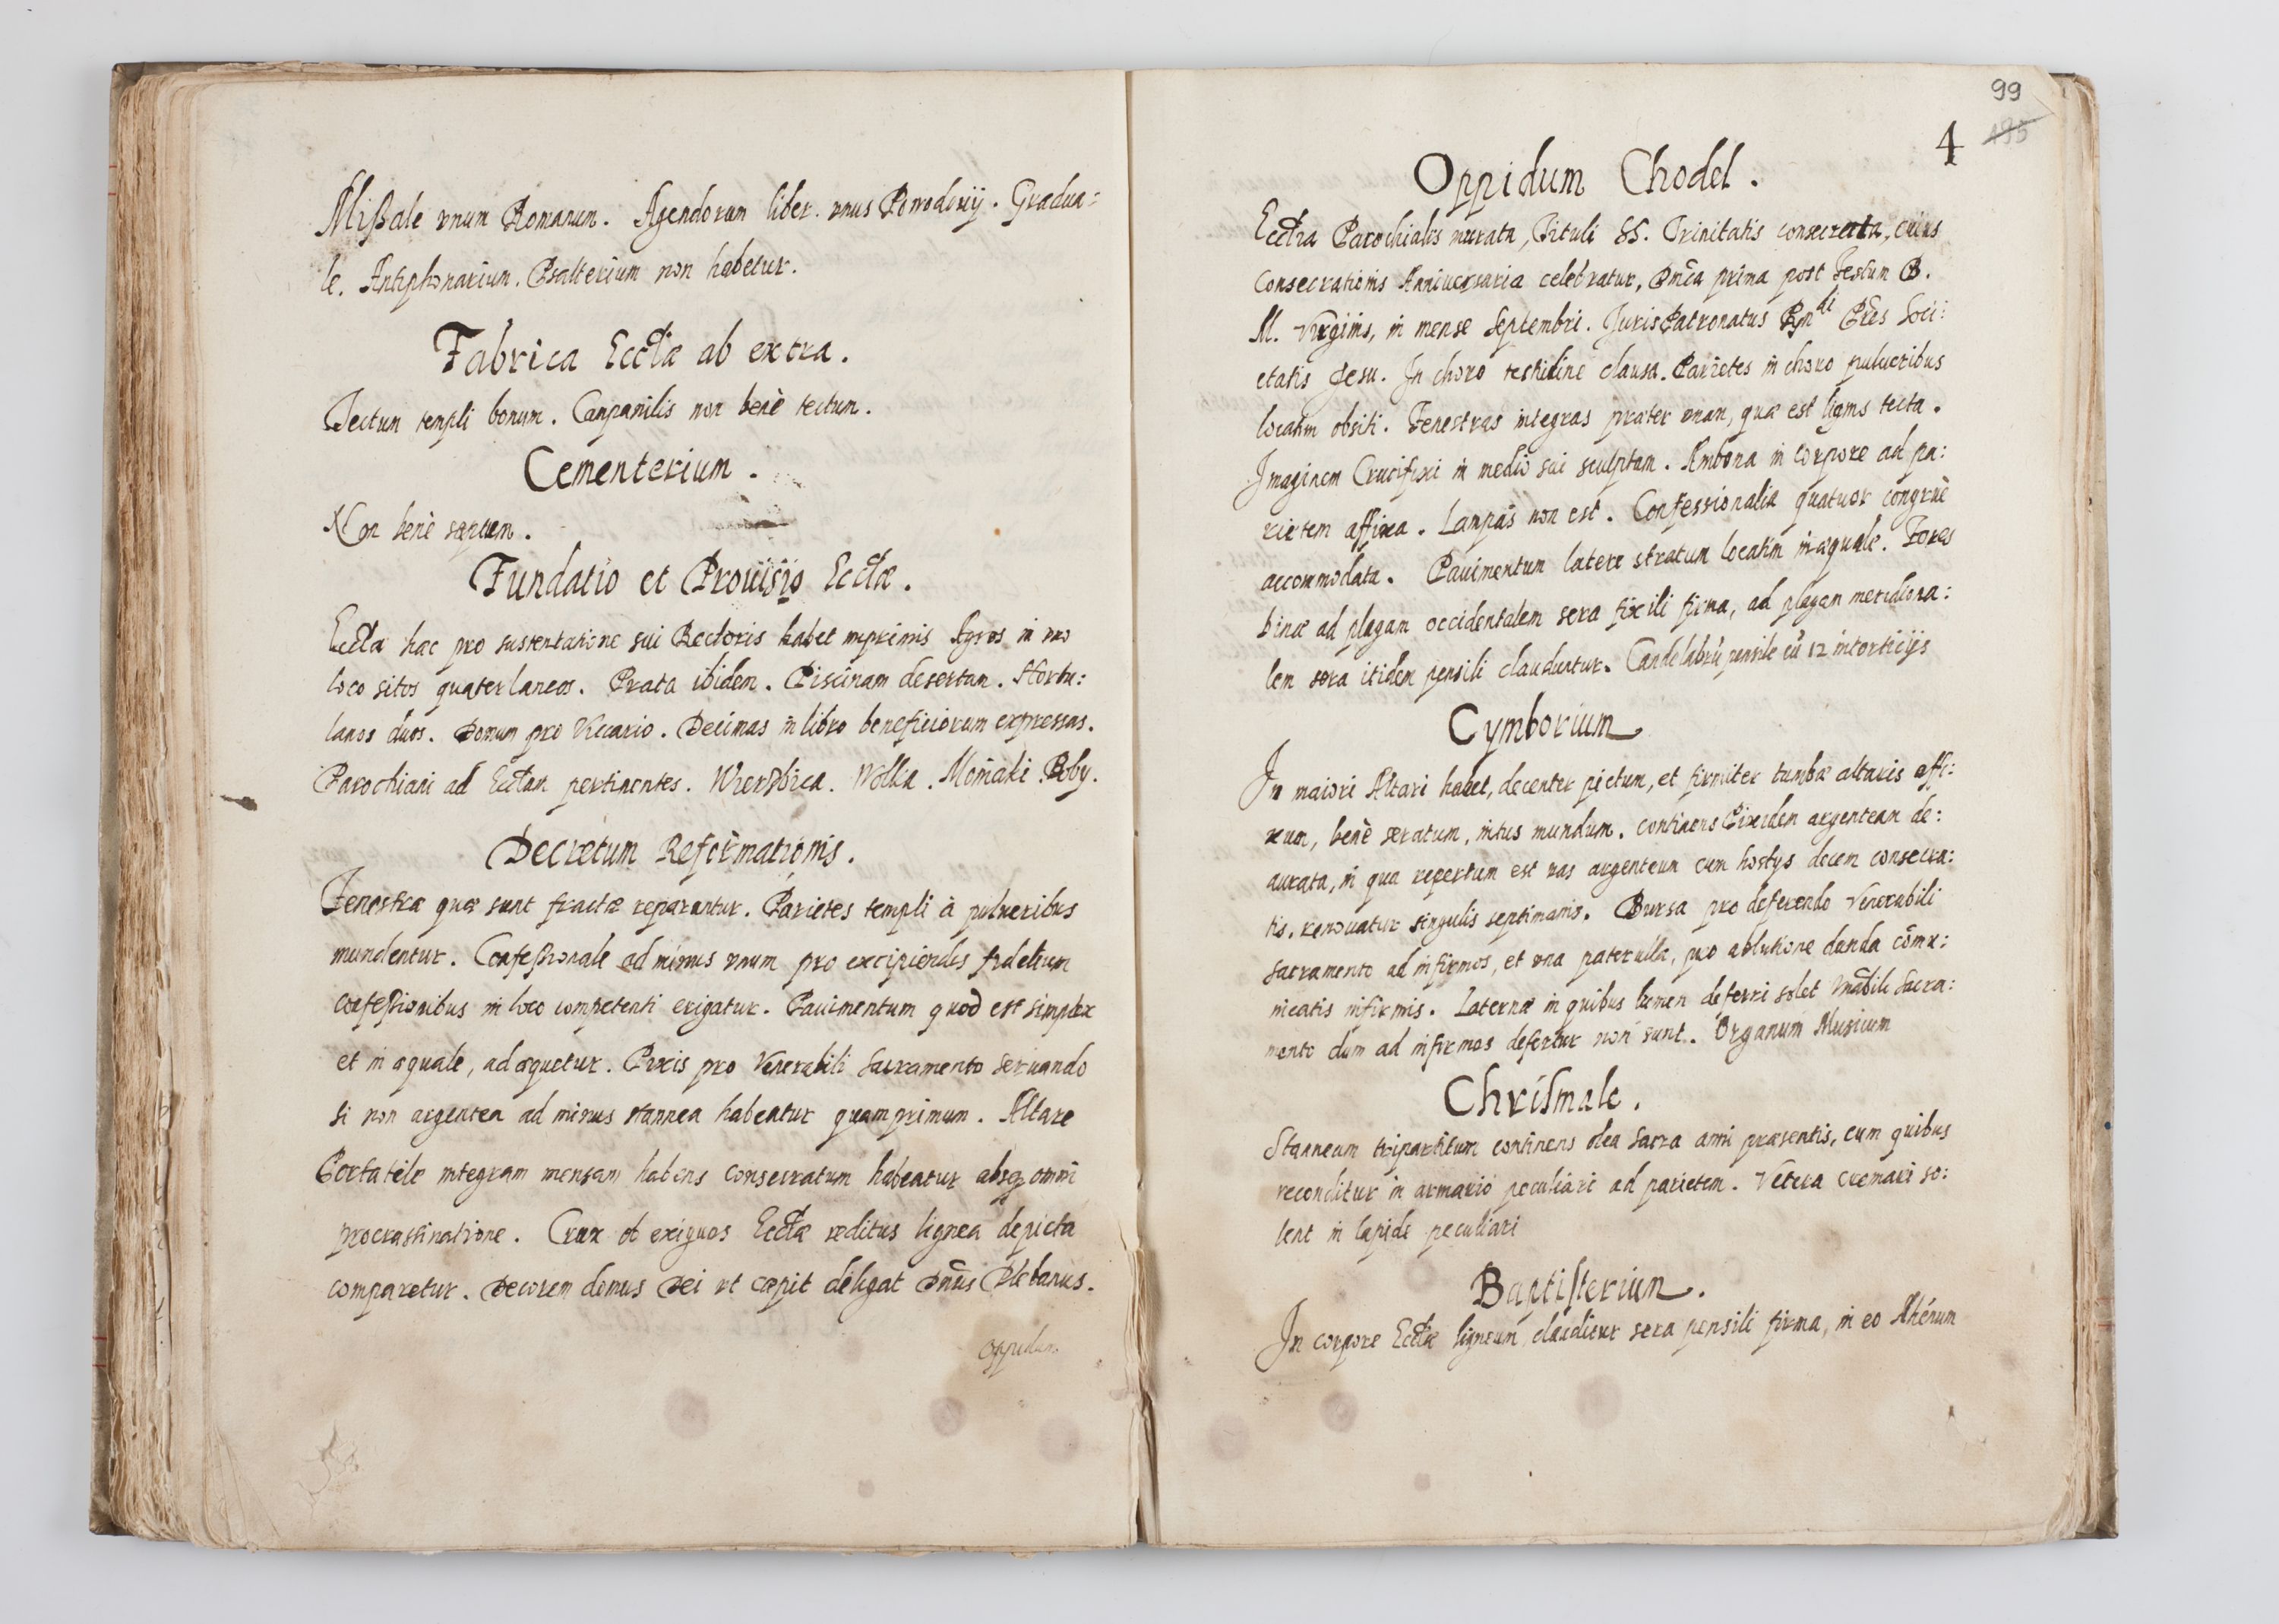 Missale vnum Romanum. Agendorum liber vnus Powodovij. Gradua=
le. Antiphonarium. Psalterium non habetur.
Fabrica Ecclæ ab extra.
Tectum templi bonum. Campanilis non benè tectum.
Cementerium.
Non benè septum.
Fundatio et Prouisio Ecclæ.
Eccla hæc pro sustentatione sui Rectoris habet inprimis Agros in vno
loco sitos quater laneos. Prata ibidem. Piscinam desertam. Hortu:
lanos duos. Domum pro Vicario. Decimas in libro beneficiorum expressas.
Parochiani ad Ecclam pertinentes. Wierzbica. Wolka. Moniaki. Boby.
Decretum Reformationis.
Fenestræ quæ sunt fractæ reparantur. Parietes templi à pulueribus
mundentur. Confessionale ad minus vnum pro excipiendis fidelium
confessionibus in loco competenti erigatur. Pauimentum quod est simplex
et inæquale, adæquetur. Pixis pro Venerabili Sacramento seruando
si non argentea ad minus stannea habeatur quamprimum. Altare
Portatile integram mensam habens consecratum habeatur absq omni
procrastinatione. Crux ob exiguos Ecclæ reditus lignea depicta
comparetur. Decorem domus Dei vt cæpit diligat Dnus Plebanus.
Oppidum
99
195
4
Oppidum Chodel.
Eccla Parochialis murata, Tituli SS. Trinitatis consecrata, cuius
Consecrationis Anniuersaria celebratur, Dnica prima post Festum B.
M. Virginis, in mense Septembri. Juris Patronatus Rndi Pres Soci:
etatis Jesu. In choro testudine clausa. Parietes in choro pulueribus
locatim obsiti. Fenestras integras præter vnam, quæ est lignis tecta.
Imaginem Crucifixi in medio sui sculptam. Ambona in corpore ad pa:
rietem affixa. Lampas non est. Confessionalia quatuor congruè
accommodata. Pauimentum latere stratum locatim inæquale. Fores
binæ ad plagam occidentalem sera fixili firma, ad plagam meridiona:
lem sera itidem pensili clauduntur. Candelabrū pensile cū 12 intorticijs
Cymborium
In maiori Altari habet, decenter pictum, et firmiter tumbæ altaris affi:
xum, benè seratum, intus mundum. continens Pixidem argenteam de:
auratam, in qua repertum est vas argenteum cum hostijs decem consecra:
tis, renouatur singulis septimanis. Bursa pro deferendo Venerabili
sacramento ad infirmos, et vna paterulla, pro ablutione danda cōmu:
nicatis infirmis. Laternæ in quibus lumen deferri solet Vnabili Sacra:
mento dum ad infirmos defertur non sunt. Organum Musicum
Chrismale.
Stanneum tripartitum continens olea sacra anni præsentis, cum quibus
reconditur in armario peculiari ad parietem. Vetera cremari so:
lent in lapide peculiari
Baptisterium.
In corpore Ecclæ ligneum clauditur sera pensili firma, in eo Ahénum